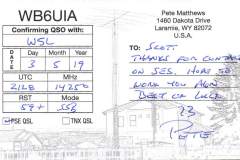 WB6UIA
Confirming QSO with
WSL
DAY MONTH YEAR
3 5 19
UTC MHz
2128 14250
RST Mode
59+ SSB
PSE QSL TNX QSL
Pete Matthews
1460 Dakota Drive
Laramie, WY 82072
U.S.A.
TO: SCOTT
THANKS FOR CONTACT
ON SES. HOPE TO
WORK YOU MORE
BEST OF LUCK
73
PETE